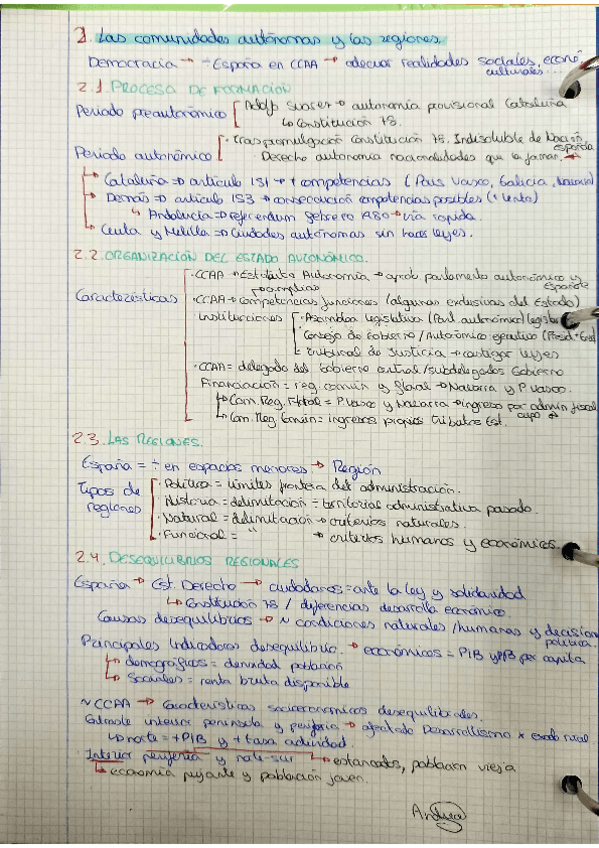 2. Las comunidades autónomas y las regiones.
Democracia → ÷ España en CCAA → adecuar realidades sociales, econó.
culturales...
2.1 PROCESO DE FORMACIÓN
Periodo preautonómico [ Adolfo Suarez → autonomía provisional Cataluña
↳ Constitución 78.
Periodo autonómico [ · Tras promulgación Constitución 78. Indisoluble de Nación
española
· Derecho autonomía nacionalidades que la forman.
↳ Cataluña ⇒ artículo 151 → + competencias (País Vasco, Galicia, Navarra)
↳ Demás ⇒ artículo 153 ⇒ consecución competencias posibles (+ lento)
↳ Andalucía ⇒ referendum febrero 1980 → vía rapida.
↳ Ceuta y Melilla ⇒ Ciudades autónomas sin hacer leyes.
2.2. ORGANIZACIÓN DEL ESTADO AUTONÓMICO.
· CCAA → Estatuto Autonomía → aprob parlamento autonómico y
española
Características · CCAA → competencias funciones (algunas exclusivas del Estado)
· Instituciones · Asamblea legislativa (Parl. autonómico)
· Consejo de Gobierno / Autonómico ejecutivo
· Tribunal de Justicia → castigar leyes
· CCAA = delegado del Gobierno central / subdelegados Gobierno
Financiación = reg. común y foral → Navarra y P. Vasco.
↳ Com. Reg. Foral = P. Vasco y Navarra → ingreso por admin fiscal
cupo
↳ Com. Reg. Común = ingresos propios tributos Est.
2.3. LAS REGIONES.
España = ÷ en espacios menores → Región
Tipos de regiones · Política = límites frontera del administración.
· Historia = delimitación = territorial administrativa pasado.
· Natural = delimitación → criterios naturales.
· Funcional = " → criterios humanos y económicos.
2.4. DESEQUILIBRIOS REGIONALES
España → Est. Derecho → ciudadanos = ante la ley y solidaridad
↳ Constitución 78 / diferencias desarrollo económico
Causas desequilibrios → ~ condiciones naturales / humanas y decision
política.
Principales Indicadores desequilibrio. → económicos = PIB y PIB per capita
↳ demográficos = densidad población
↳ Sociales = renta bruta disponible
~ CCAA → Características socioeconomicos desequilibrados.
interior península y periferia → desarrollismo x exodo rural
↳ norte = + PIB y + tasa actividad.
· Interior periferia y norte-sur ↳ estancados, población vieja
↳ economía pujante y población joven.
Andrea